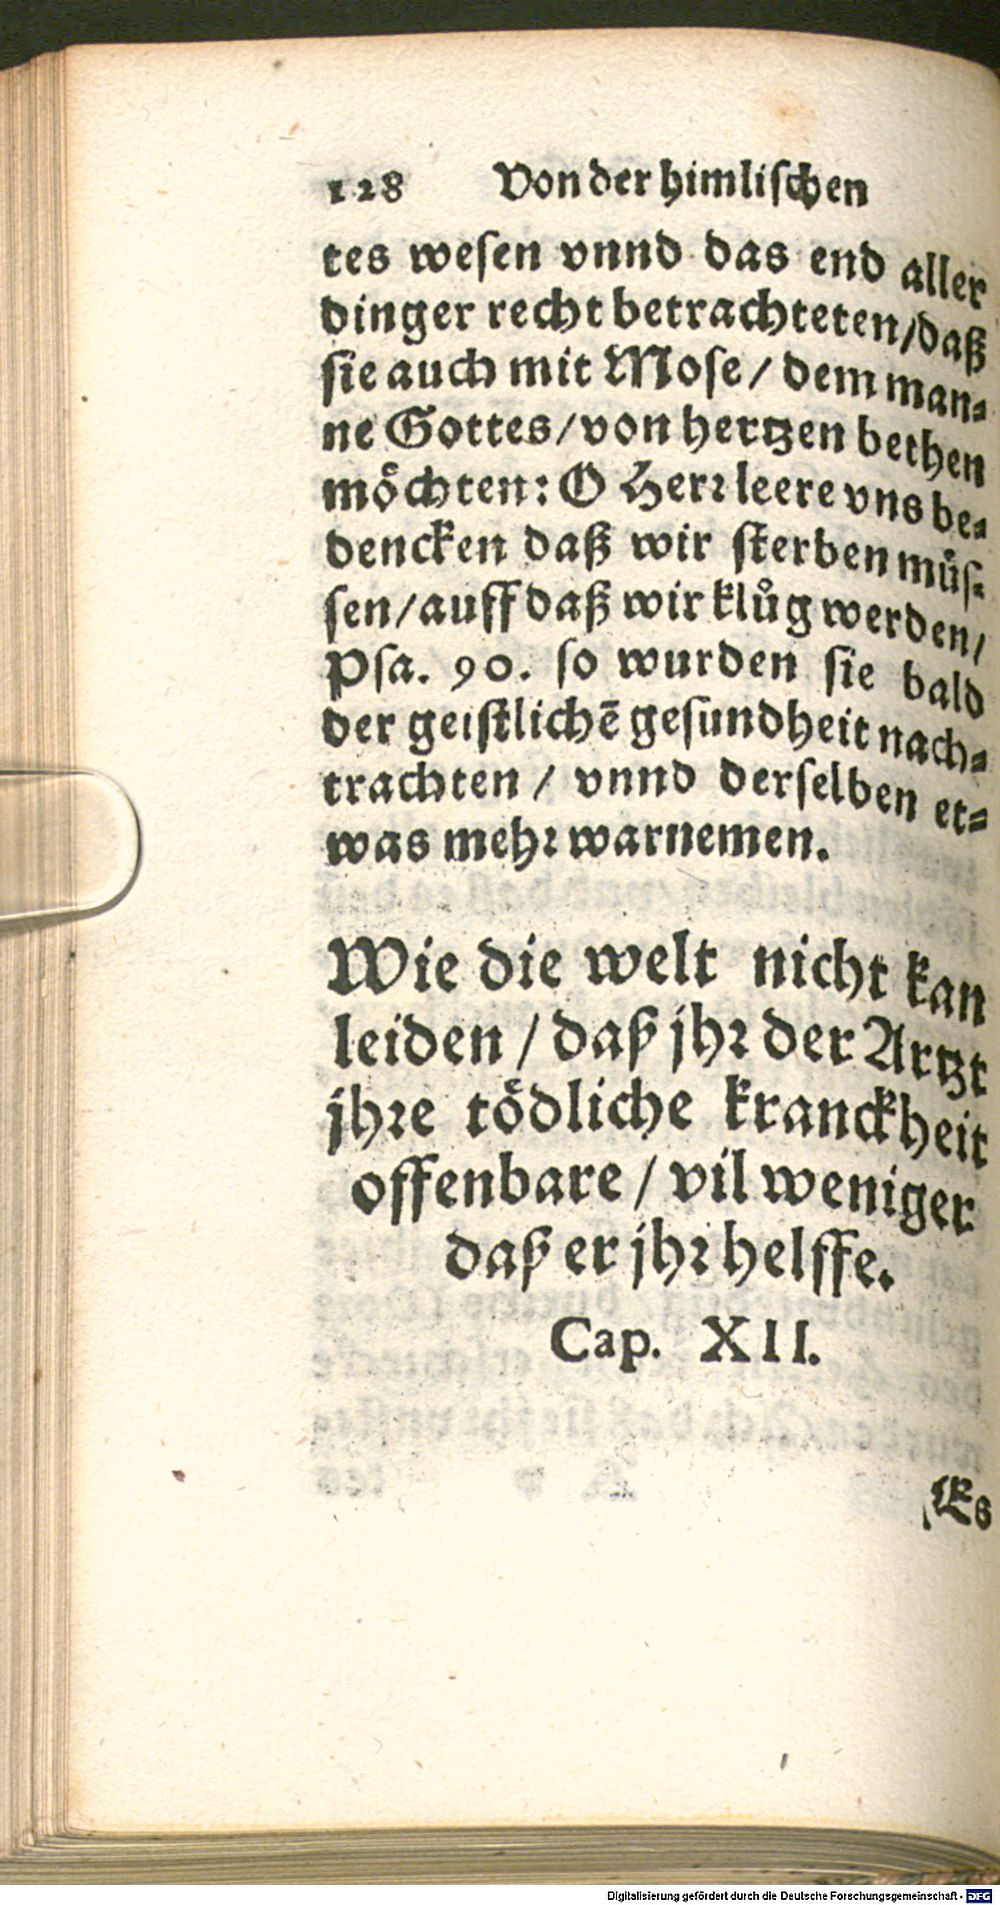 128 Von der himlischen
tes wesen vnnd das end aller
dinger recht betrachteten/daß
sie auch mit Mose/dem man⸗
ne Gottes/von hertzen bethen
möchten: O Herꝛ leere vns be⸗
dencken daß wir sterben müs⸗
sen/auff daß wir klůg werden/
Psa. 90. so wurden sie bald
der geistlichē gesundheit nach⸗
trachten / vnnd derselben et⸗
was mehꝛ warnemen.
Wie die welt nicht kan
leiden / daß jhꝛ der Artzt
jhꝛe tödliche kranckheit
offenbare / vil weniger
daß er jhꝛ helffe.
Cap. XII.
Es
Digitalisierung gefördert durch die Deutsche Forschungsgemeinschaft - DFG